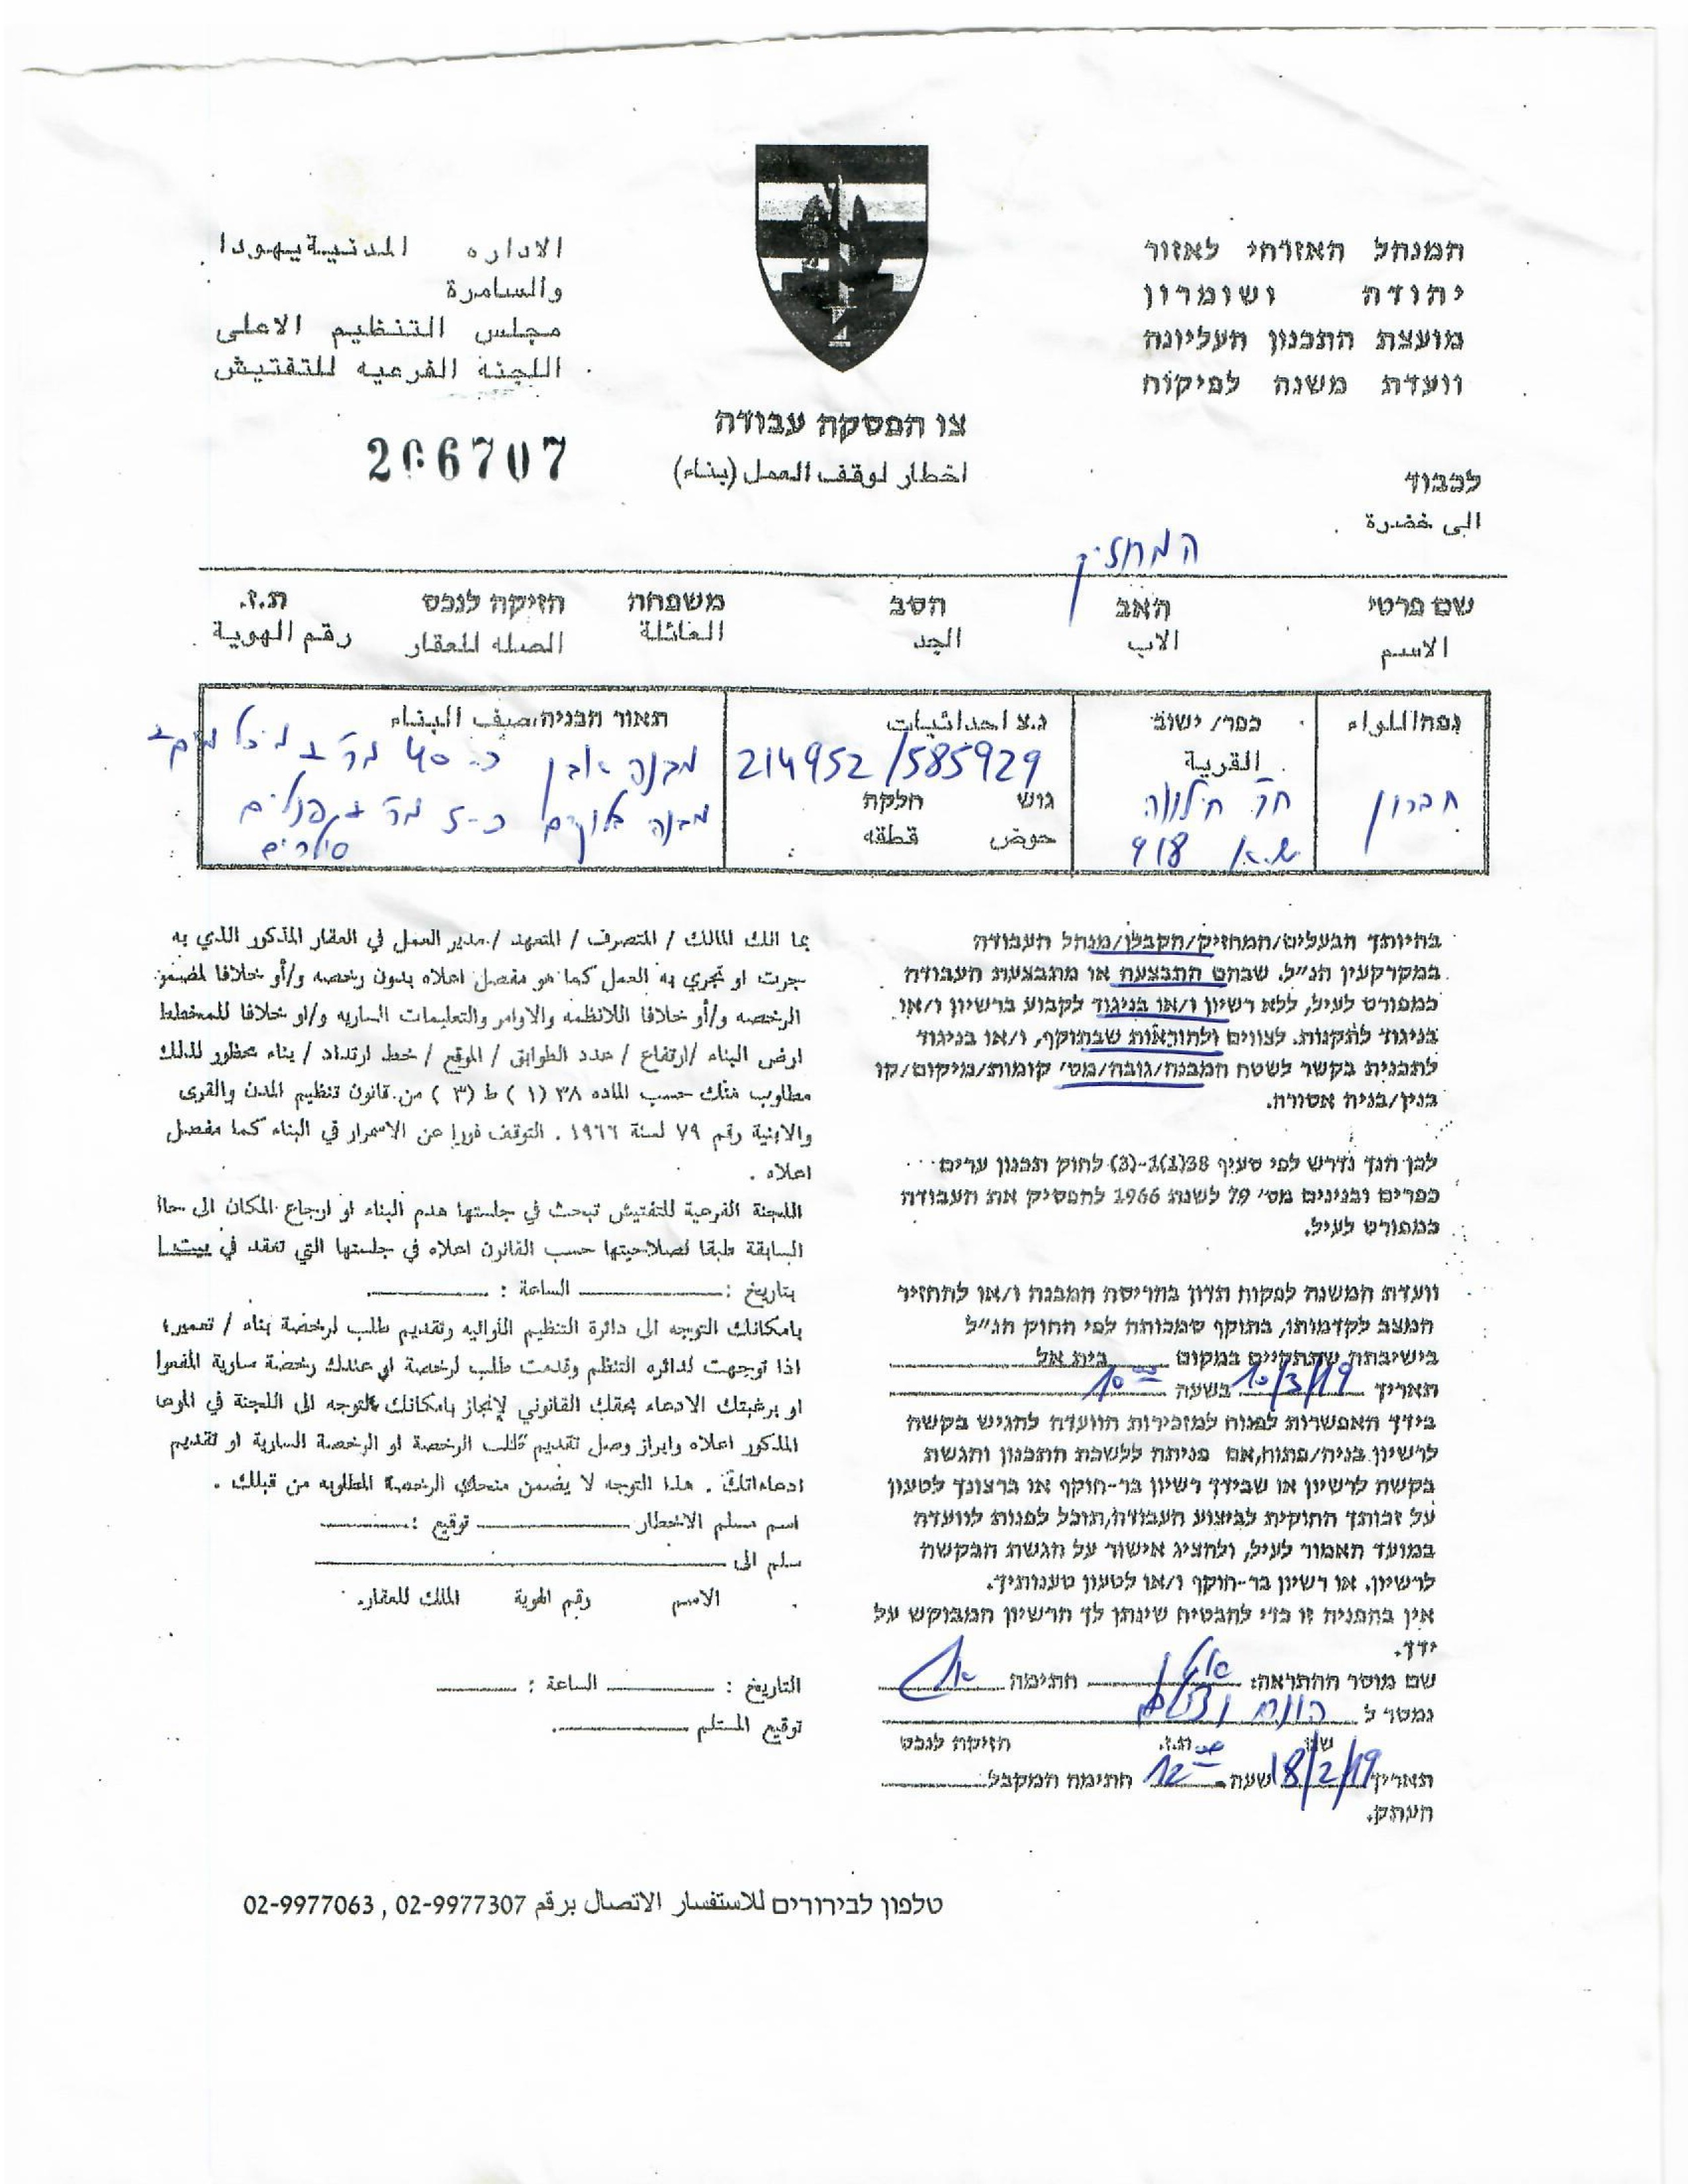 המנהל האזרחי לאזור
יהודה ושומרון
מועצת התכנון העליונה
וועדת משנה לפיקוח
الاداره المدنية يهودا
والسامرة
مجلس التنظيم الاعلى
اللجنة الفرعيه للتفتيش
צו הפסקת עבודה
اخطار لوقف العمل (بناء)
206707
לכבוד
الى حضرة
המחזיק
שם פרטי האב הסב משפחה חזיקה לנכס ת.ז.
الاسم الاب الجد العائلة الصله للعقار رقم الهوية
נפה/اللواء
חברון
כפר/ ישוב
القرية
חר' חילווה
ש.א 918
נ.צ احداثيات
214952/585929
גוש חלקה
حوض قطقه
תאור הבניה/صيف البناء
מבנה אבן כ-40 מ"ר
מבנה בלוקים כ-5 מ"ר
סולרים
בהיותך הבעלים/המחזיק/הקבלן/מנהל העבודה
במקרקעין הנ"ל. שבהם התבצעה או מתבצעת העבודה
כמפורט לעיל, ללא רשיון ו/או בניגוד לקבוע ברשיון ו/או
בניגוד לתקנות. לצווים ולהוראות שבתוקף, ו/או בניגוד
לתכנית בקשר לשטח המבנה/גובה/מס' קומות/מיקום/קו
בנין/בניה אסורה.
לכן הנך נדרש לפי סעיף 38(1)1-(3) לחוק תכנון ערים
כפרים ובנינים מס' 79 לשנת 1966 להפסיק את העבודה
כמפורט לעיל.
וועדת המשנה לפקוח תדון בהריסת המבנה ו/או להחזיר
המצב לקדמותו, בתוקף סמכותה לפי החוק הנ"ל
בישיבתה שתתקיים במקום בית אל
תאריך 10/3/19 בשעה 10 00
בידך האפשרות לפנות למזכירות הוועדה להגיש בקשה
לרשיון בניה/פתוח,אם פניתה ללשכת התכנון והגשת
בקשה לרשיון או שבידך רשיון בר-תוקף או ברצונך לטעון
על זכותך החוקית לביצוע העבודה,תוכל לפנות לוועדה
במועד האמור לעיל, ולהציג אישור על הגשת הבקשה
לרשיון. או רשיון בר-תוקף ו/או לטעון טענותיך.
אין בהפניה זו כדי להבטיח שינתן לך הרשיון המבוקש על
ידך.
שם מוסר ההתראה: חתימה
נמסר ל הונח
שם ת.ז. חזיקה לנכס
תאריך 18/2/19 שעה 12 00 חתימת המקבל
העתק.
بما انك المالك / المتصرف / المتعهد / مدير العمل في العقار المذكور الذي به
جرت او تجري به العمل كما هو مفصل اعلاه بدون رخصه و/أو خلافا لمضمو
الرخصه و/أو خلافا اللانظمه والاوامر والتعليمات الساريه و/او خلافا للمخطط
ارض البناء /ارتفاع / عدد الطوابق / الموقع / خط ارتداد / بناء محظور لذلك
مطلوب منك حسب الماده ٣٨ (١) ط (٣) من قانون تنظيم المدن والقرى
والابنية رقم ٧٩ لسنة ١٩٦٦ . التوقف فورا عن الاسمرار في البناء كما مفصل
اعلاه .
اللجنة الفرعية للتفتيش تبحث في جلستها هدم البناء او ارجاع المكان الى حاا
السابقة طبقا لصلاحيتها حسب القانون اعلاه في جلستها التي تعقد في
بتاريخ : الساعة :
بامكانك التوجه الى دائرة التنظيم اللوائيه وتقديم طلب لرخصة بناء / تعمير؛
اذا توجهت لدائره التنظم وقدمت طلب لرخصة او عندك رخصة سارية المفعوا
او برغبتك الادعاء بحقك القانوني لإنجاز بامكانك التوجه الى اللجنة في الموعا
المذكور اعلاه وابراز وصل تقديم طلب الرخصة او الرخصة السارية او تقديم
ادعاءاتك . هذا التوجه لا يضمن منحك الرخصة المطلوبه من قبلك .
اسم مسلم الاخطار توقيع :
سلم الى
الاسم رقم الهوية المالك للعقار.
التاريخ : الساعة :
توقيع المستلم
טלפון לבירורים للاستفسار الاتصال برقم 02-9977307 , 02-9977063